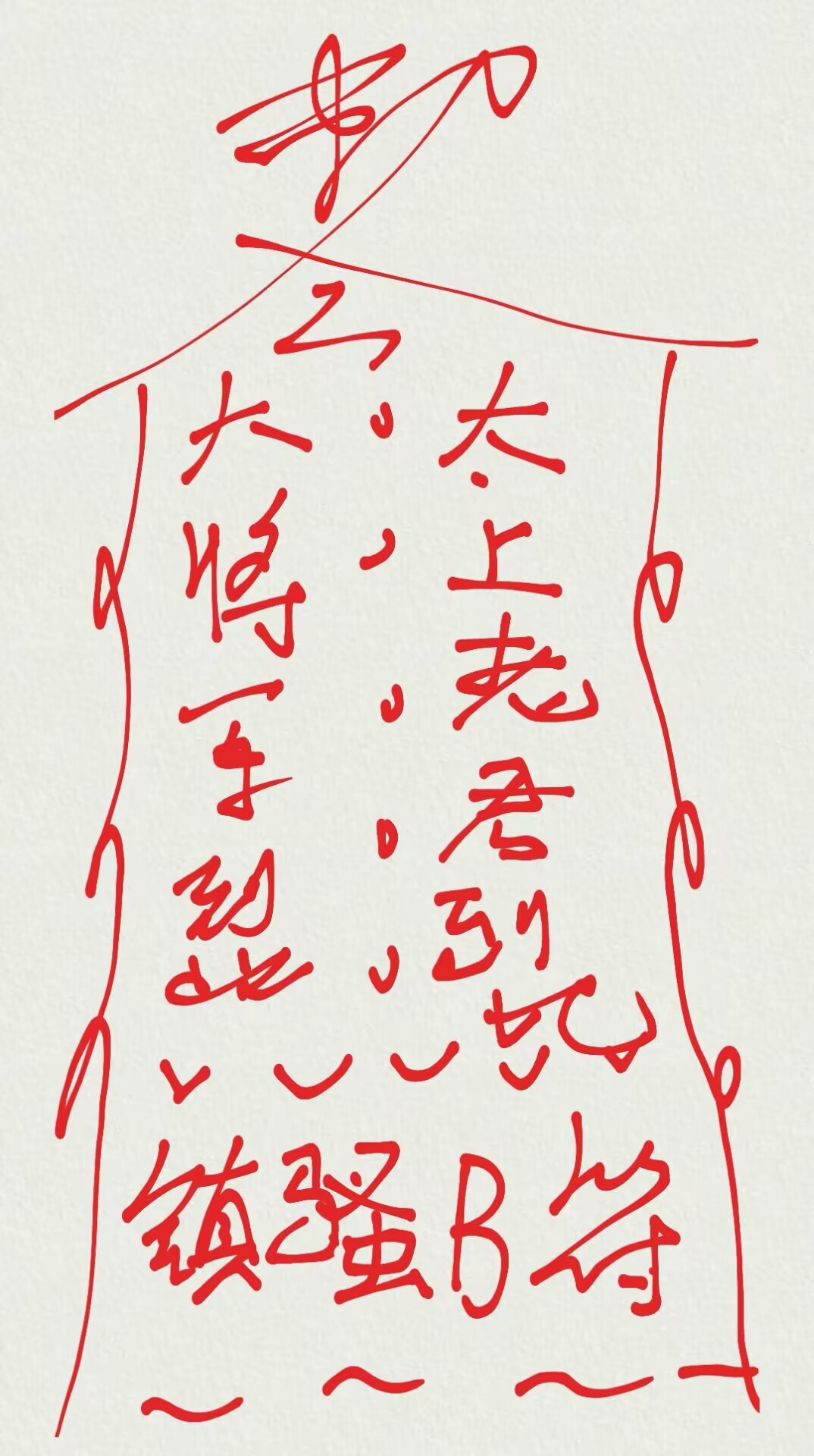 敕令
太上老君到此
大将军到此
镇骚B符